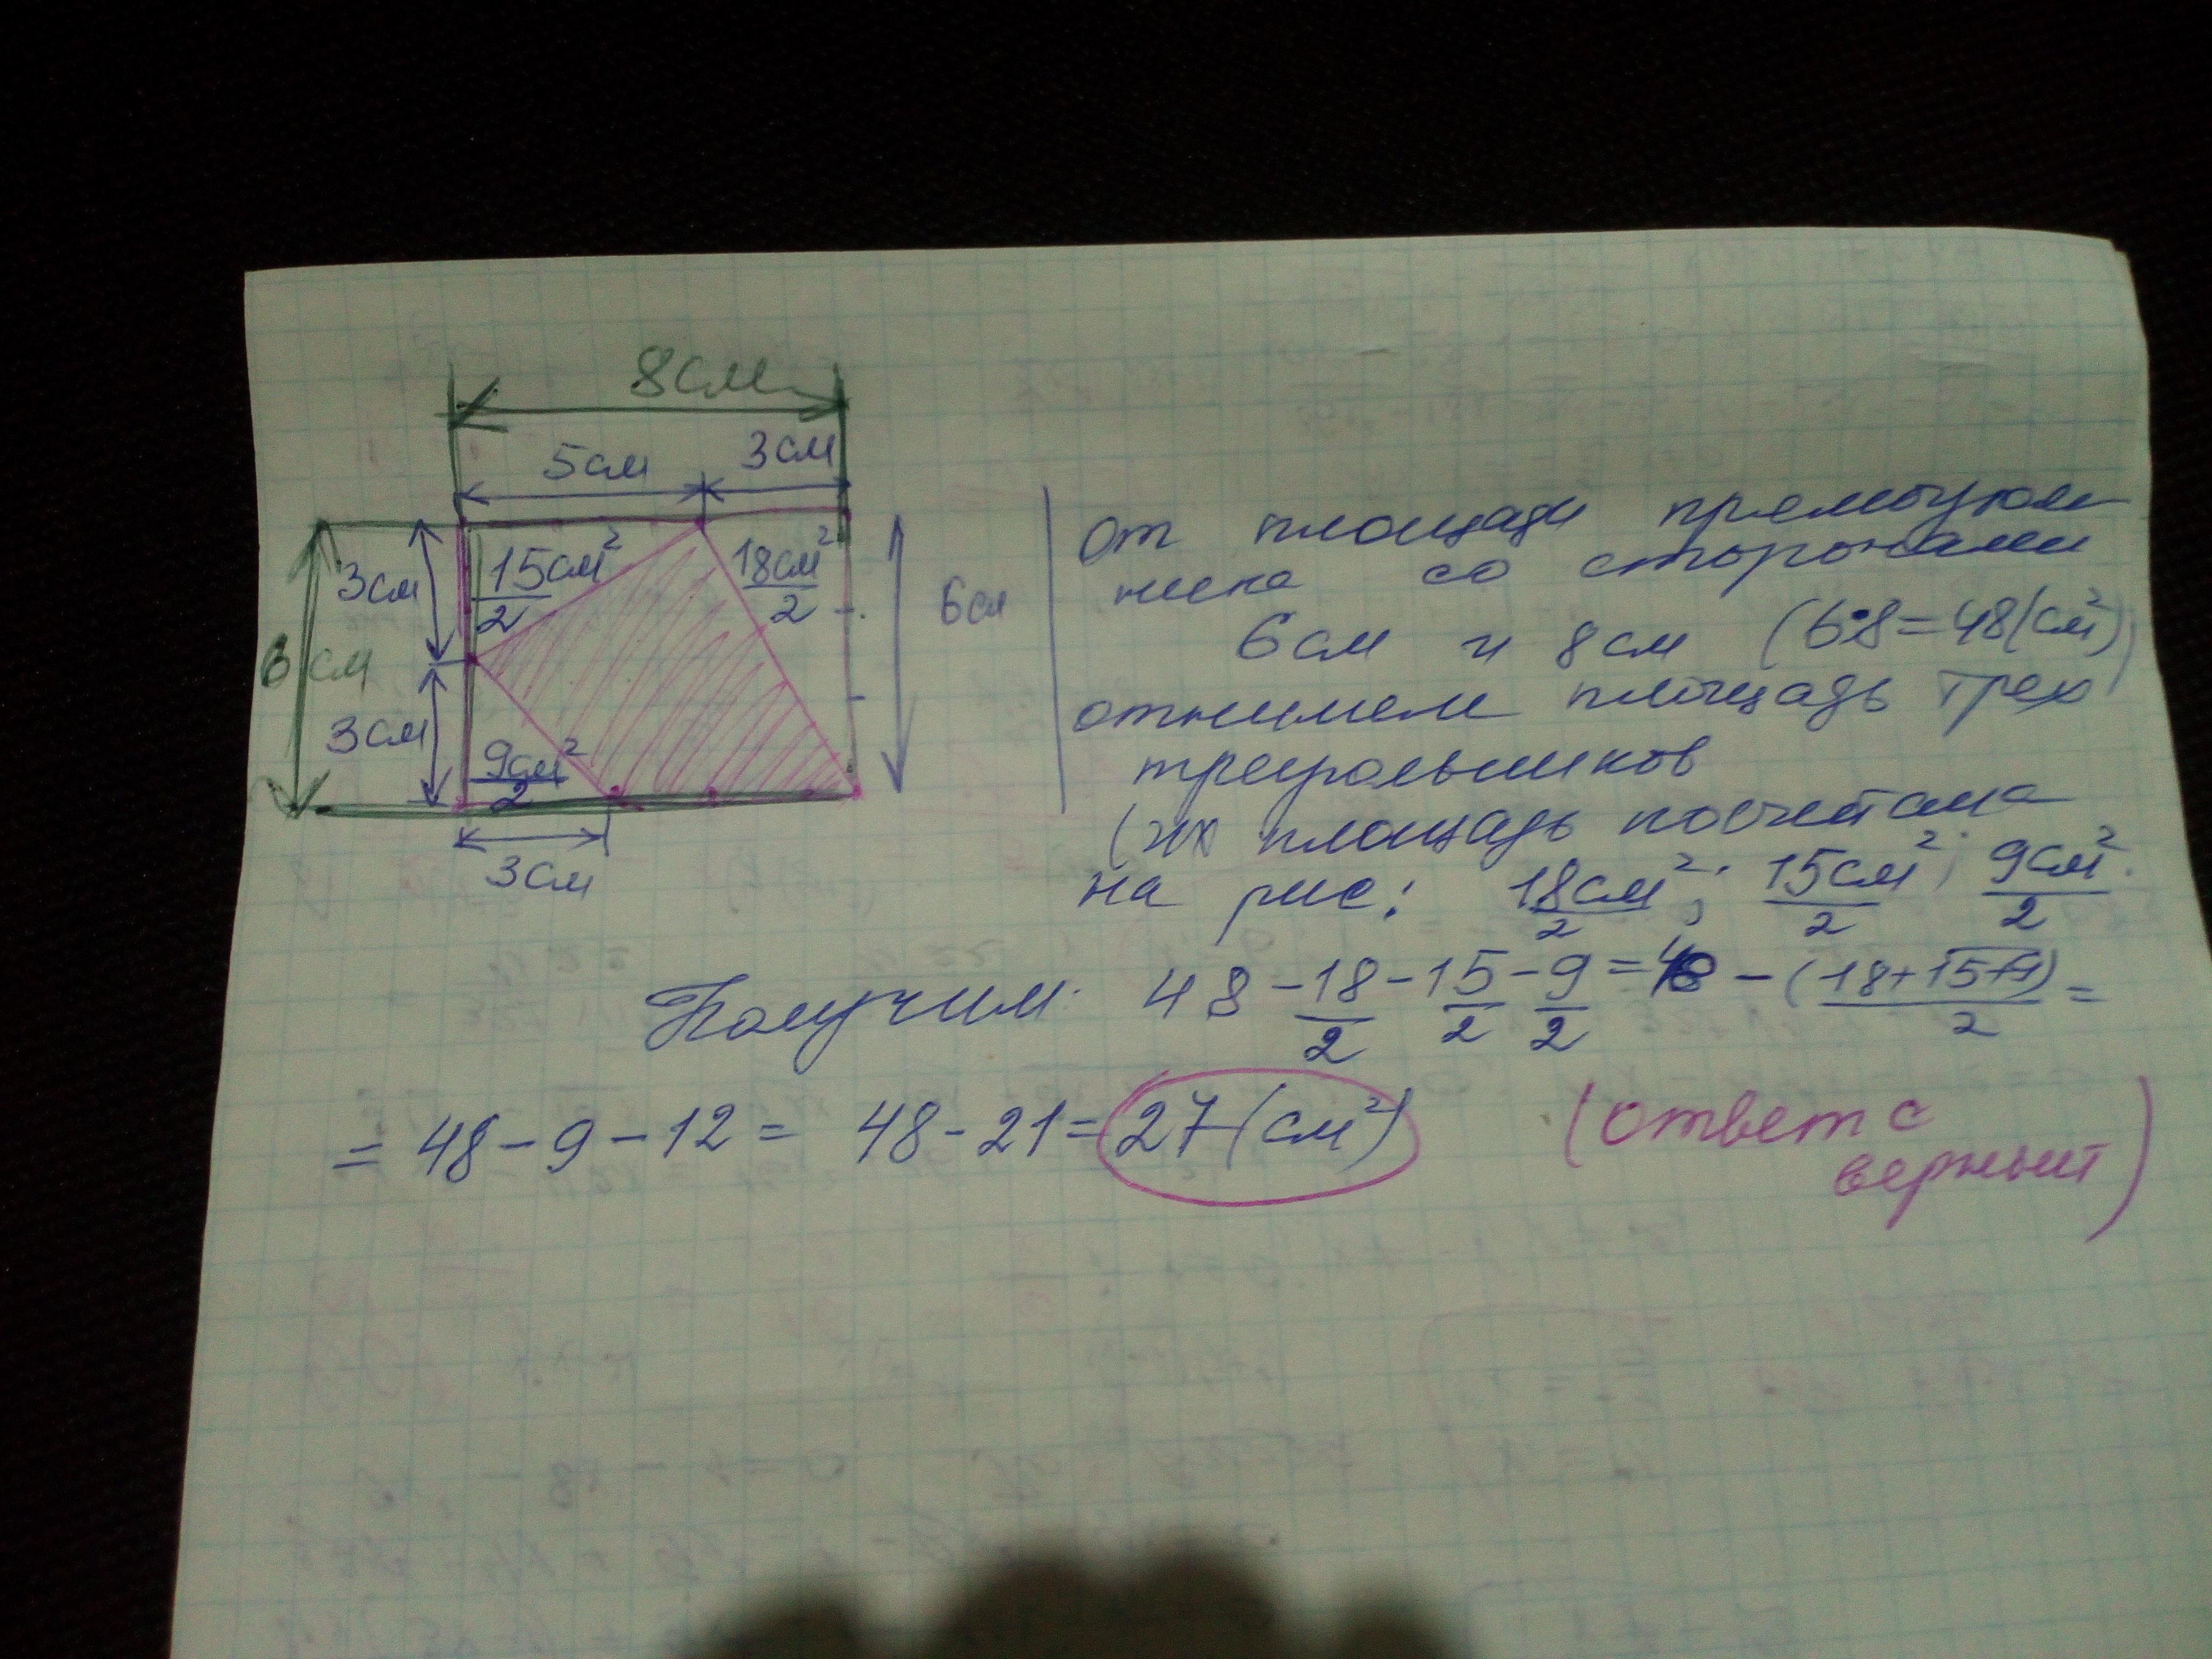 8см
5см 3см
3см 15см²/2 18см²/2 6см
6 см
3см 9см²/2
3см
От площади прямоуголь
ника со сторонами
6см и 8см (6·8=48(см²)
отнимем площадь трех
треугольников
(их площадь посчитана
на рис: 18см²/2; 15см²/2; 9см²/2.
Получим: 48 - 18/2 - 15/2 - 9/2 = 48 - (18+15+9)/2 =
= 48 - 9 - 12 = 48 - 21 = 27 (см²) (ответ с
верный)